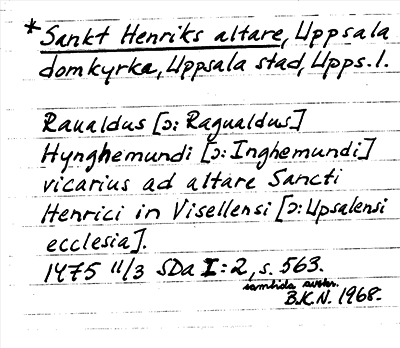 *Sankt Henriks altare, Uppsala
domkyrka, Uppsala stad, Upps. l.
Raualdus [ɔ: Ragualdus]
Hynghemundi [ɔ: Inghemundi]
vicarius ad altare Sancti
Henrici in Visellensi [ɔ: Upsalensi
ecclesia].
1475 11/3 SDa I:2, s. 563.
samtida avskr.
B.K.N. 1968.